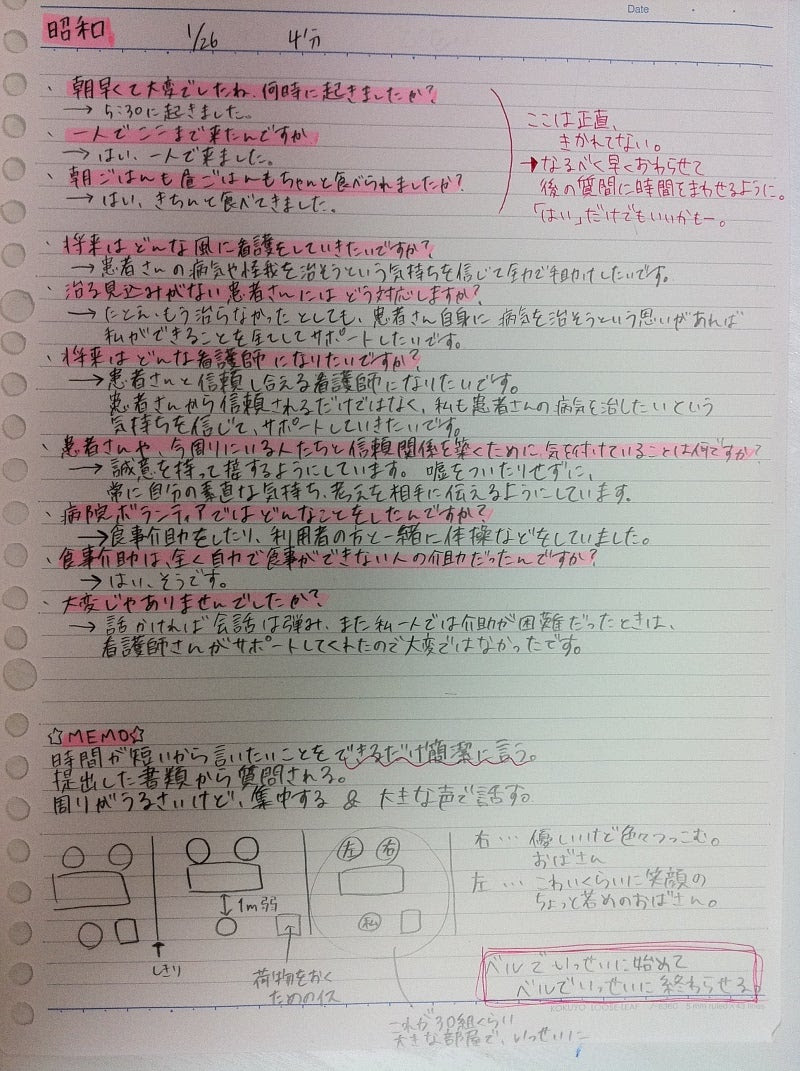 Date
昭和 1/26 4分
・朝早くて大変でしたね。何時に起きましたか?
→ 5:30に起きました。
・一人でここまで来たんですか
→ はい、一人で来ました。
・朝ごはんも昼ごはんもちゃんと食べられましたか?
→ はい、きちんと食べてきました。
ここは正直、
きかれてない。
→なるべく早くおわらせて
後の質問に時間をまわせるように。
「はい」だけでもいいかもー。
・将来はどんな風に看護をしていきたいですか?
→患者さんの病気や怪我を治そうという気持ちを信じて全力で手助けしたいです。
・治る見込みがない患者さんにはどう対応しますか?
→たとえ、もう治らなかったとしても、患者さん自身に病気を治そうという思いがあれば
私ができることを全てしてサポートしたいです。
・将来はどんな看護師になりたいですか?
→患者さんと信頼し合える看護師になりたいです。
患者さんから信頼されるだけではなく、私も患者さんの病気を治したいという
気持ちを信じて、サポートしていきたいです。
・患者さんや、今周りにいる人たちと信頼関係を築くために気を付けていることは何ですか?
→誠意を持って接するようにしています。嘘をついたりせずに、
常に自分の素直な気持ち、考えを相手に伝えるようにしています。
・病院ボランティアではどんなことをしたんですか?
→食事介助をしたり、利用者の方と一緒に体操などをしていました。
・食事介助は、全く自力で食事ができない人の介助だったんですか?
→はい、そうです。
・大変じゃありませんでしたか?
→ 話かければ会話は弾み、また私一人では介助が困難だったときは、
看護師さんがサポートしてくれたので大変ではなかったです。
☆MEMO☆
時間が短いから言いたいことをできるだけ簡潔に言う。
提出した書類から質問される。
周りがうるさいけど、集中する & 大きな声で話す。
左 右
私
1m弱
しきり
荷物をおく
ためのイス
右… 優しいけど色々つっこむ。
おばさん
左… こわいくらいに笑顔の
ちょっと若めのおばさん。
ベルでいっせいに始めて
ベルでいっせいに終わらせる。
これが30組くらい
大きな部屋で、いっせいに
KOKUYO LOOSE-LEAF